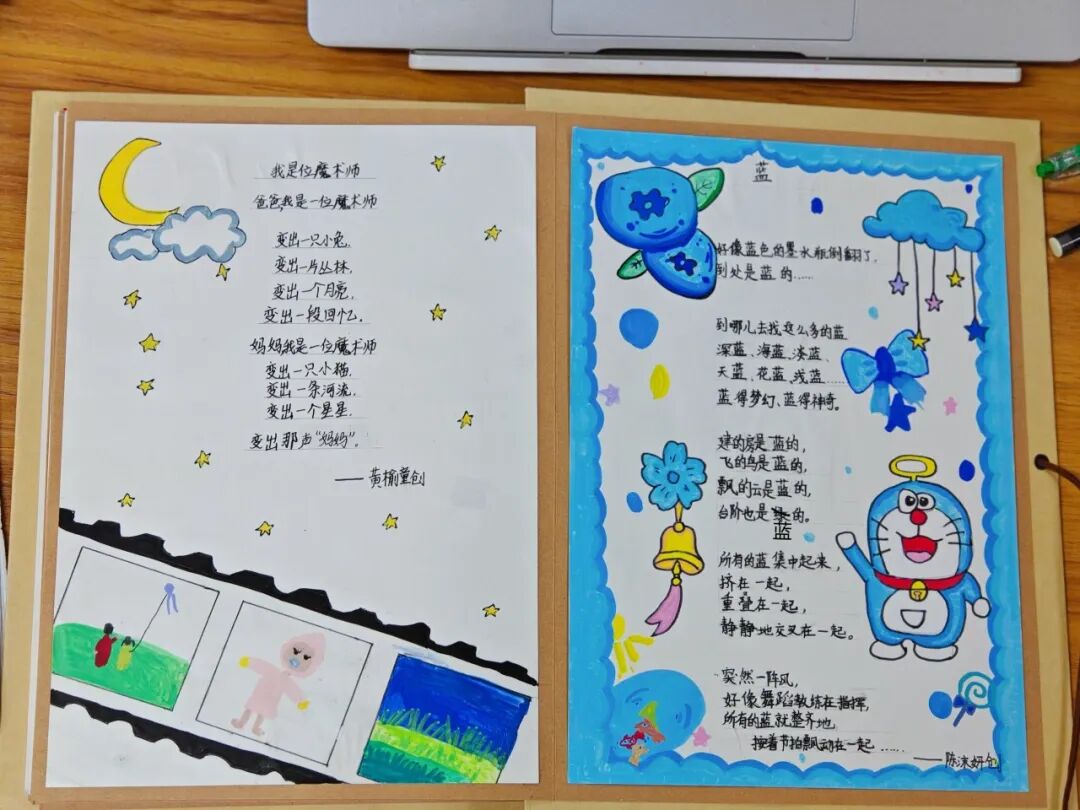 我是位魔术师
爸爸,我是一位魔术师
变出一只小兔,
变出一片丛林,
变出一个月亮,
变出一段回忆。
妈妈,我是一位魔术师
变出一只小猫,
变出一条河流,
变出一个星星,
变出那声“妈妈”。
——黄榆童创
蓝
好像蓝色的墨水瓶倒翻了,
到处是蓝的……
到哪儿去找这么多的蓝
深蓝、海蓝、淡蓝、
天蓝、花蓝、浅蓝……
蓝得梦幻、蓝得神奇。
建的房是蓝的,
飞的鸟是蓝的,
飘的云是蓝的,
台阶也是蓝的。
所有的蓝集中起来,
挤在一起,
重叠在一起,
静静地交叉在一起。
突然一阵风,
好像舞蹈教练在指挥,
所有的蓝就整齐地,
按着节拍飘动在一起……
——陈沫妍创